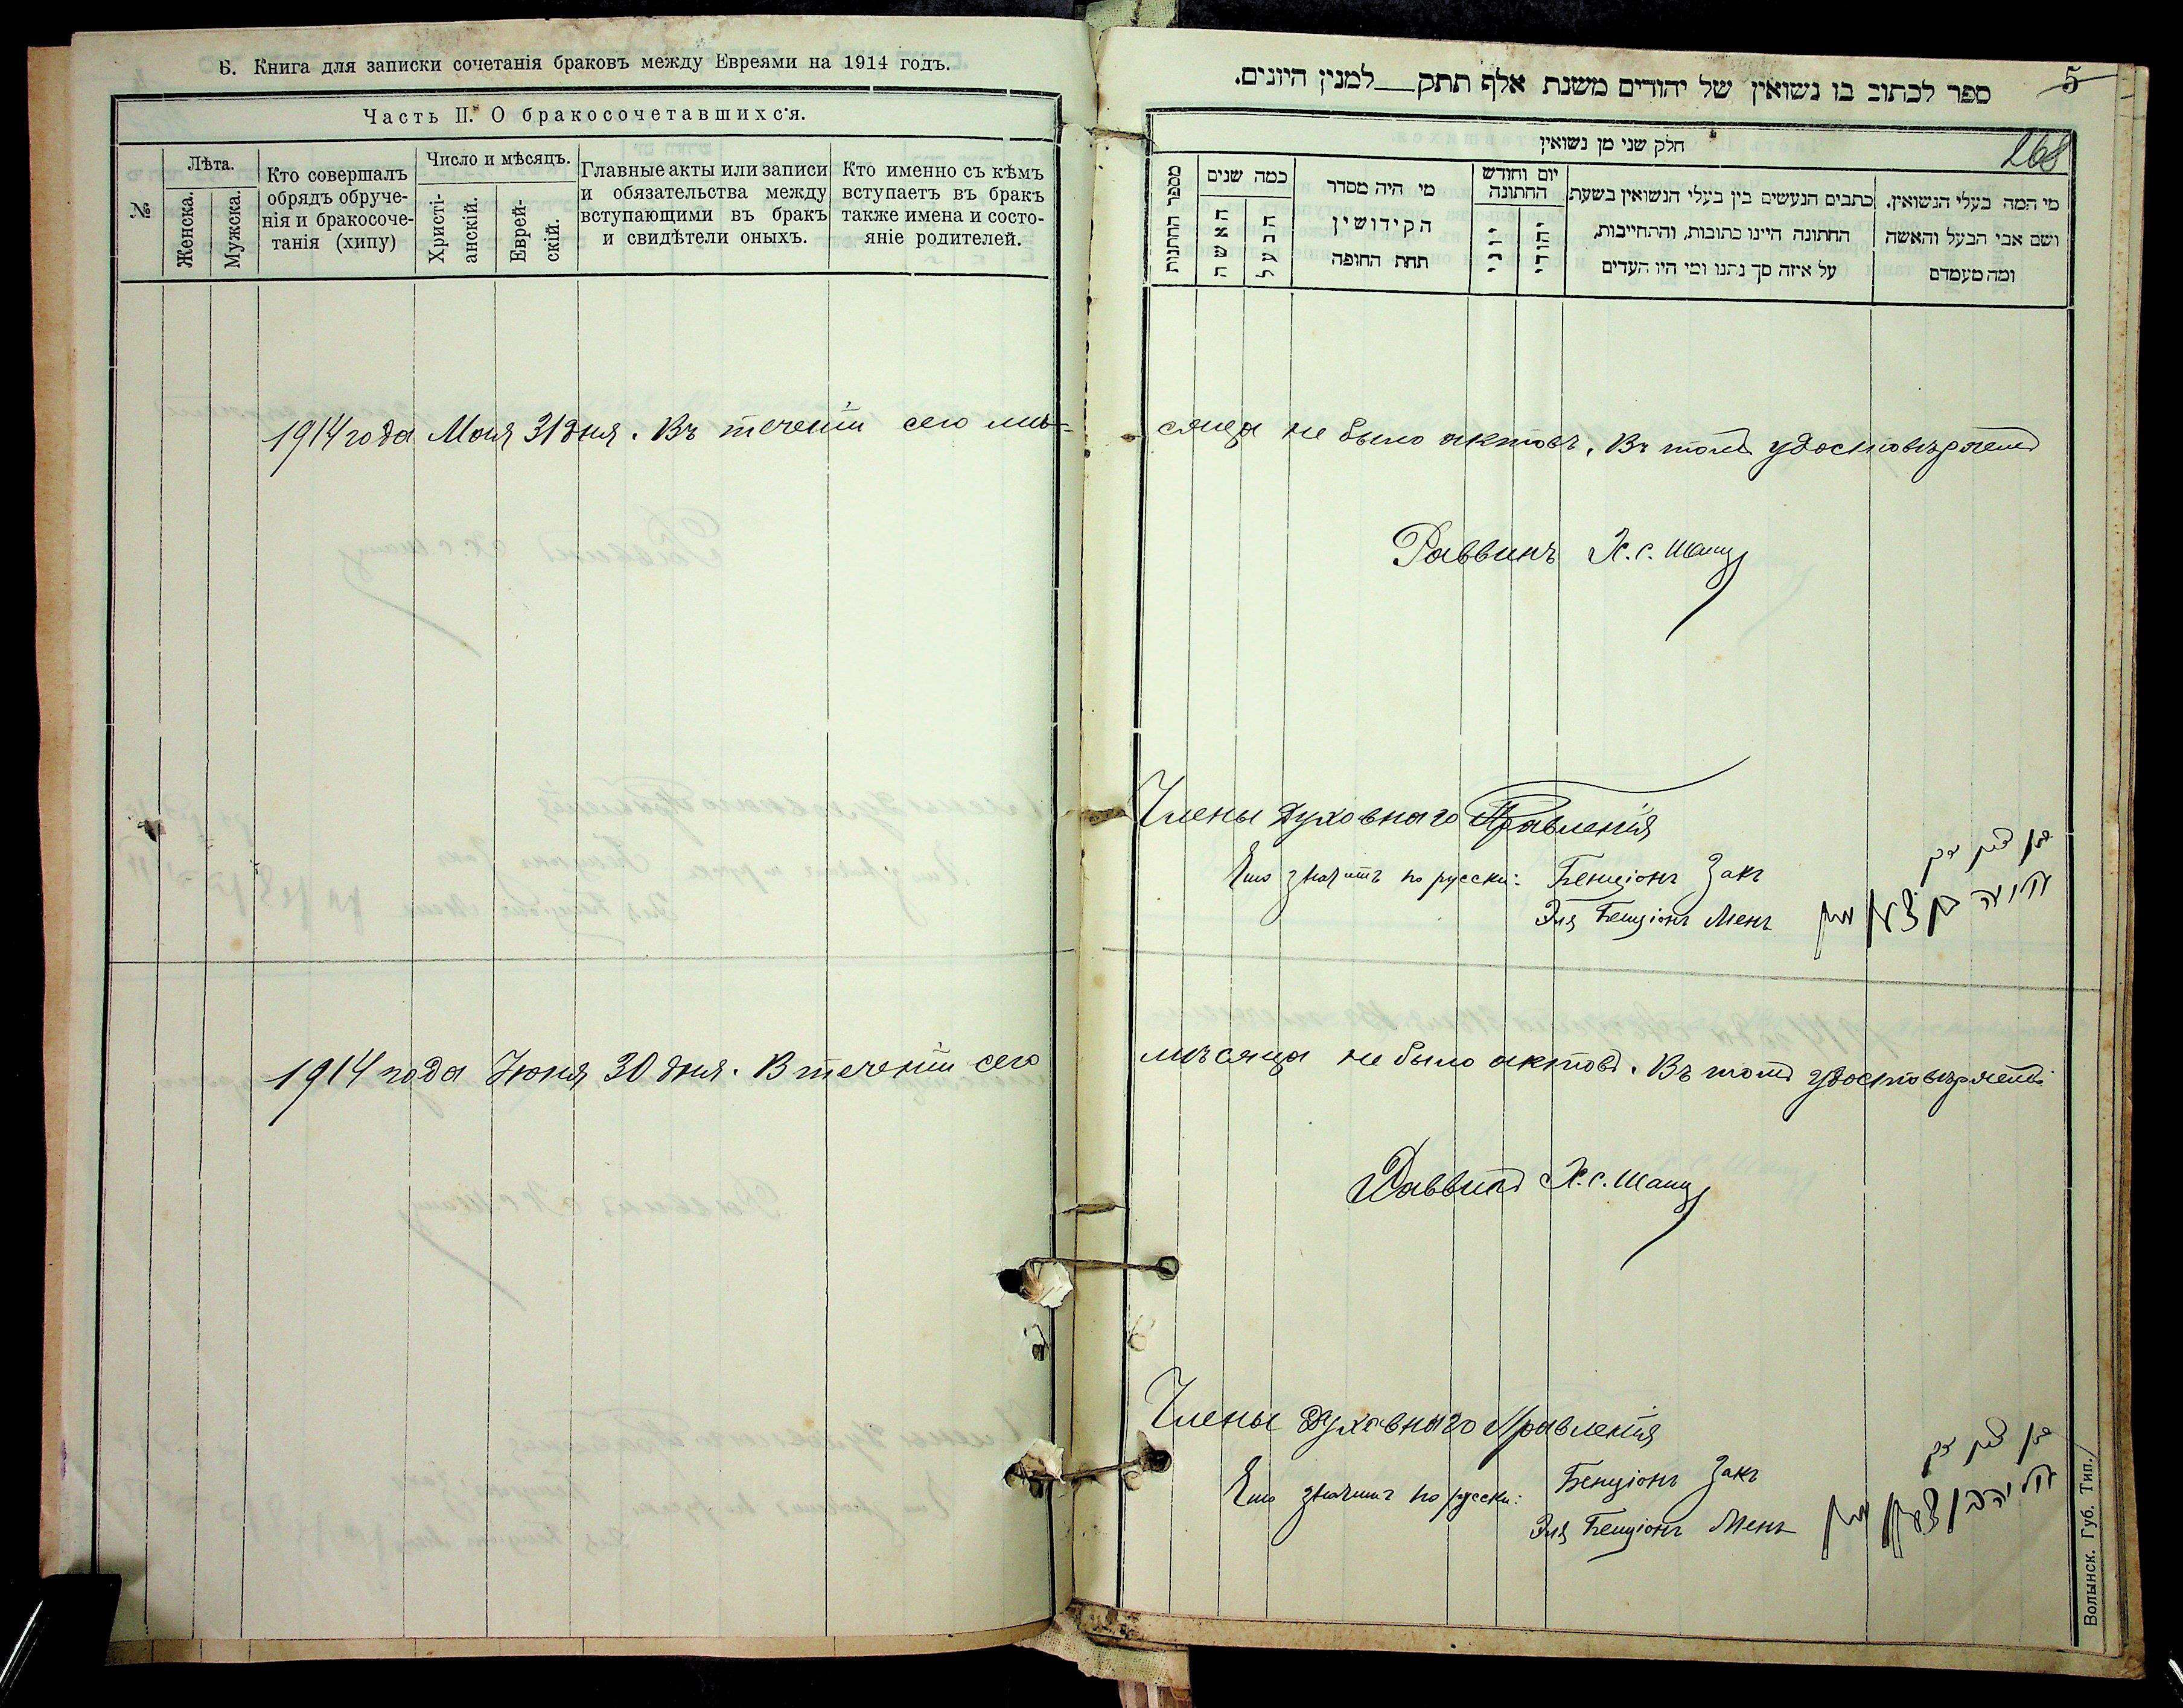 Б. Книга для записки сочетанія браковъ между Евреями на 1914 годъ.
Часть II. О бракосочетавшихся.
№
Лѣта.
Женска.
Мужска.
Кто совершалъ
обрядъ обруче-
нія и бракосоче-
танія (хипу)
Число и мѣсяцъ.
Христі-
анскій.
Еврей-
скій.
Главные акты или записи
и обязательства между
вступающими въ бракъ
и свидѣтели оныхъ.
Кто именно съ кѣмъ
вступаетъ въ бракъ
также имена и состо-
яніе родителей.
1914 года Мая 31 дня. Въ теченіи сего мѣ-
1914 года Іюня 30 дня. В теченіи сего
ספר לכתוב בו נשואין של יהודים משנת אלף תתק__למנין היונים.
5
268
חלק שני מן נשואין
מספר החתונות
כמה שנים
האשה
הבעל
מי היה מסדר
הקידושין
תחת החופה
יום וחודש
החתונה
יוני
יהודי
כתבים הנעשים בין בעלי הנשואין בשעת
החתונה היינו כתובות, והתחייבות,
על איזה סך נתנו ומי היו העדים
מי המה בעלי הנשואין.
ושם אבי הבעל והאשה
ומה מעמדם
сяца не было актовъ. Въ томъ удостовѣряемъ
Раввинъ Х. С. Шапц
Члены Духовнаго Правленія
Что значитъ по русски: Бенціонъ Закъ
בן ציון זק
Эля Бенціонъ Менъ
אליה בן ציון מן
мѣсяца не было актовъ. Въ томъ удостовѣряемъ
Раввинъ Х. С. Шапц
Члены Духовнаго Правленія
Что значитъ по русски: Бенціонъ Закъ
בן ציון זק
Эля Бенціонъ Менъ
אליה בן ציון מן
Волынск. Губ. Тип.